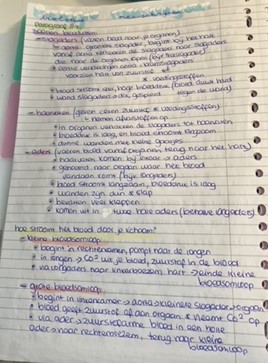 Paragraaf 3
slagaders (voeren bloed naar je organen)
aorta: grootste slagader, begint bij het hart
vanaf aorta vertakken de slagaders naar slagaders
die naar de organen lopen
aorta vertakken
voorzien hart van zuurstof
& voedingsstoffen
bloed stroomt snel, hoge bloeddruk (bloed duwt hard
wand slagaders dik, gespierd tegen de wand)
haarvaten (geven cellen zuurstof & voedingsstoffen)
nemen afvalstoffen op
in organen vertakken de slagaders tot haarvaten
bloeddruk is laag, en bloed stroomt langzaam
dunne wanden met kleine gaatjes
aders (voeren bloed vanaf organen terug naar het hart)
haarvaten komen bij elkaar → aders
genoemd naar orgaan waar het bloed
vandaan komt
bloed stroomt langzaam, bloeddruk is laag
wanden zijn dun & slap
bevatten veel kleppen
komen uit in twee holle aders
hoe stroomt het bloed door je lichaam?
kleine bloedsomloop
begint in rechterkamer, pompt naar de longen
in longen → Co² uit je bloed, zuurstof in de bloed
via longaders naar linkerboezem hart - einde kleine
bloedsomloop
grote bloedsomloop
begint in linkerkamer → aorta → kleinere slagaders → organen
bloed geeft zuurstof af aan organen & neemt Co² op
via ader → zuurstofarme bloed in een holle
ader → naar rechterboezem, terug naar kleine
bloedsomloop